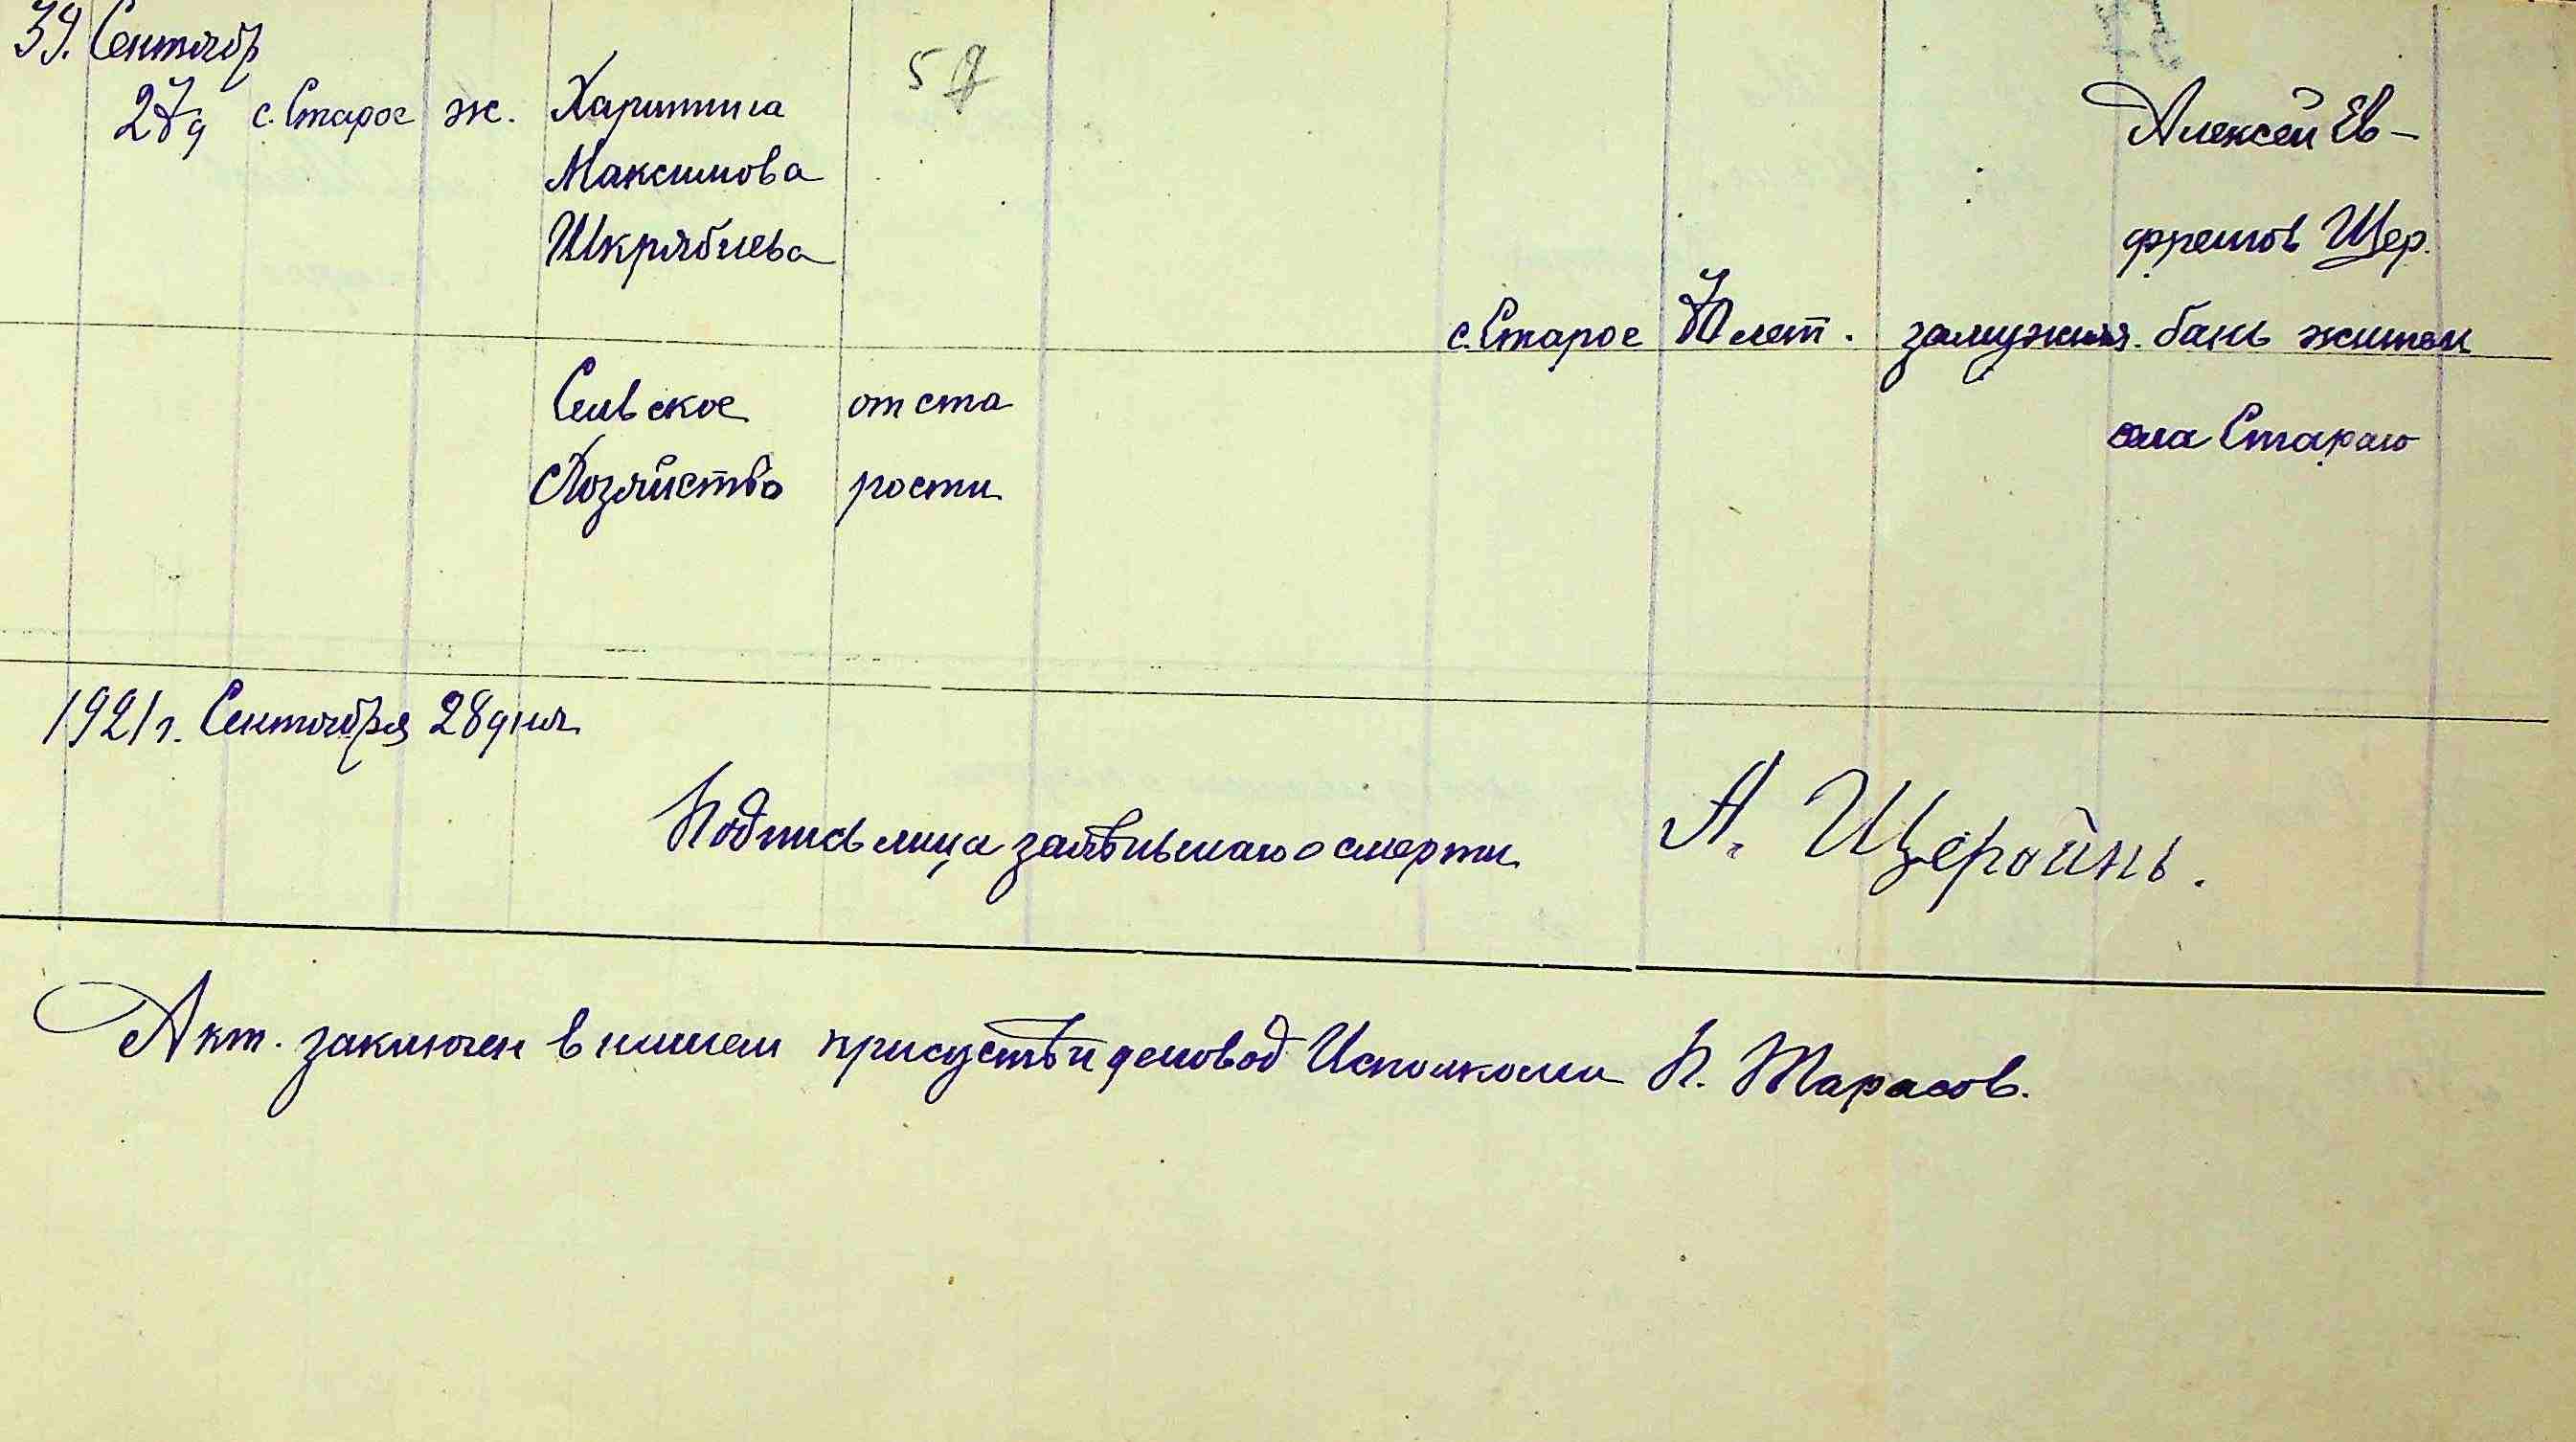 39. Сентябр
27д с. Старое ж. Харитина
Максимова
Шкряблева
Алексей Ев-
фремов Щер.
с. Старое 70 лет. замужняя. бань жител
села Стараго
Сельское от ста
Хозяйство рости
1921 г. Сентября 28 дня
Подпись лица заявившаго о смерти А. Щербань.
Акт. заключен в нашем присуствй деловод Исполкома П. Тарасов.